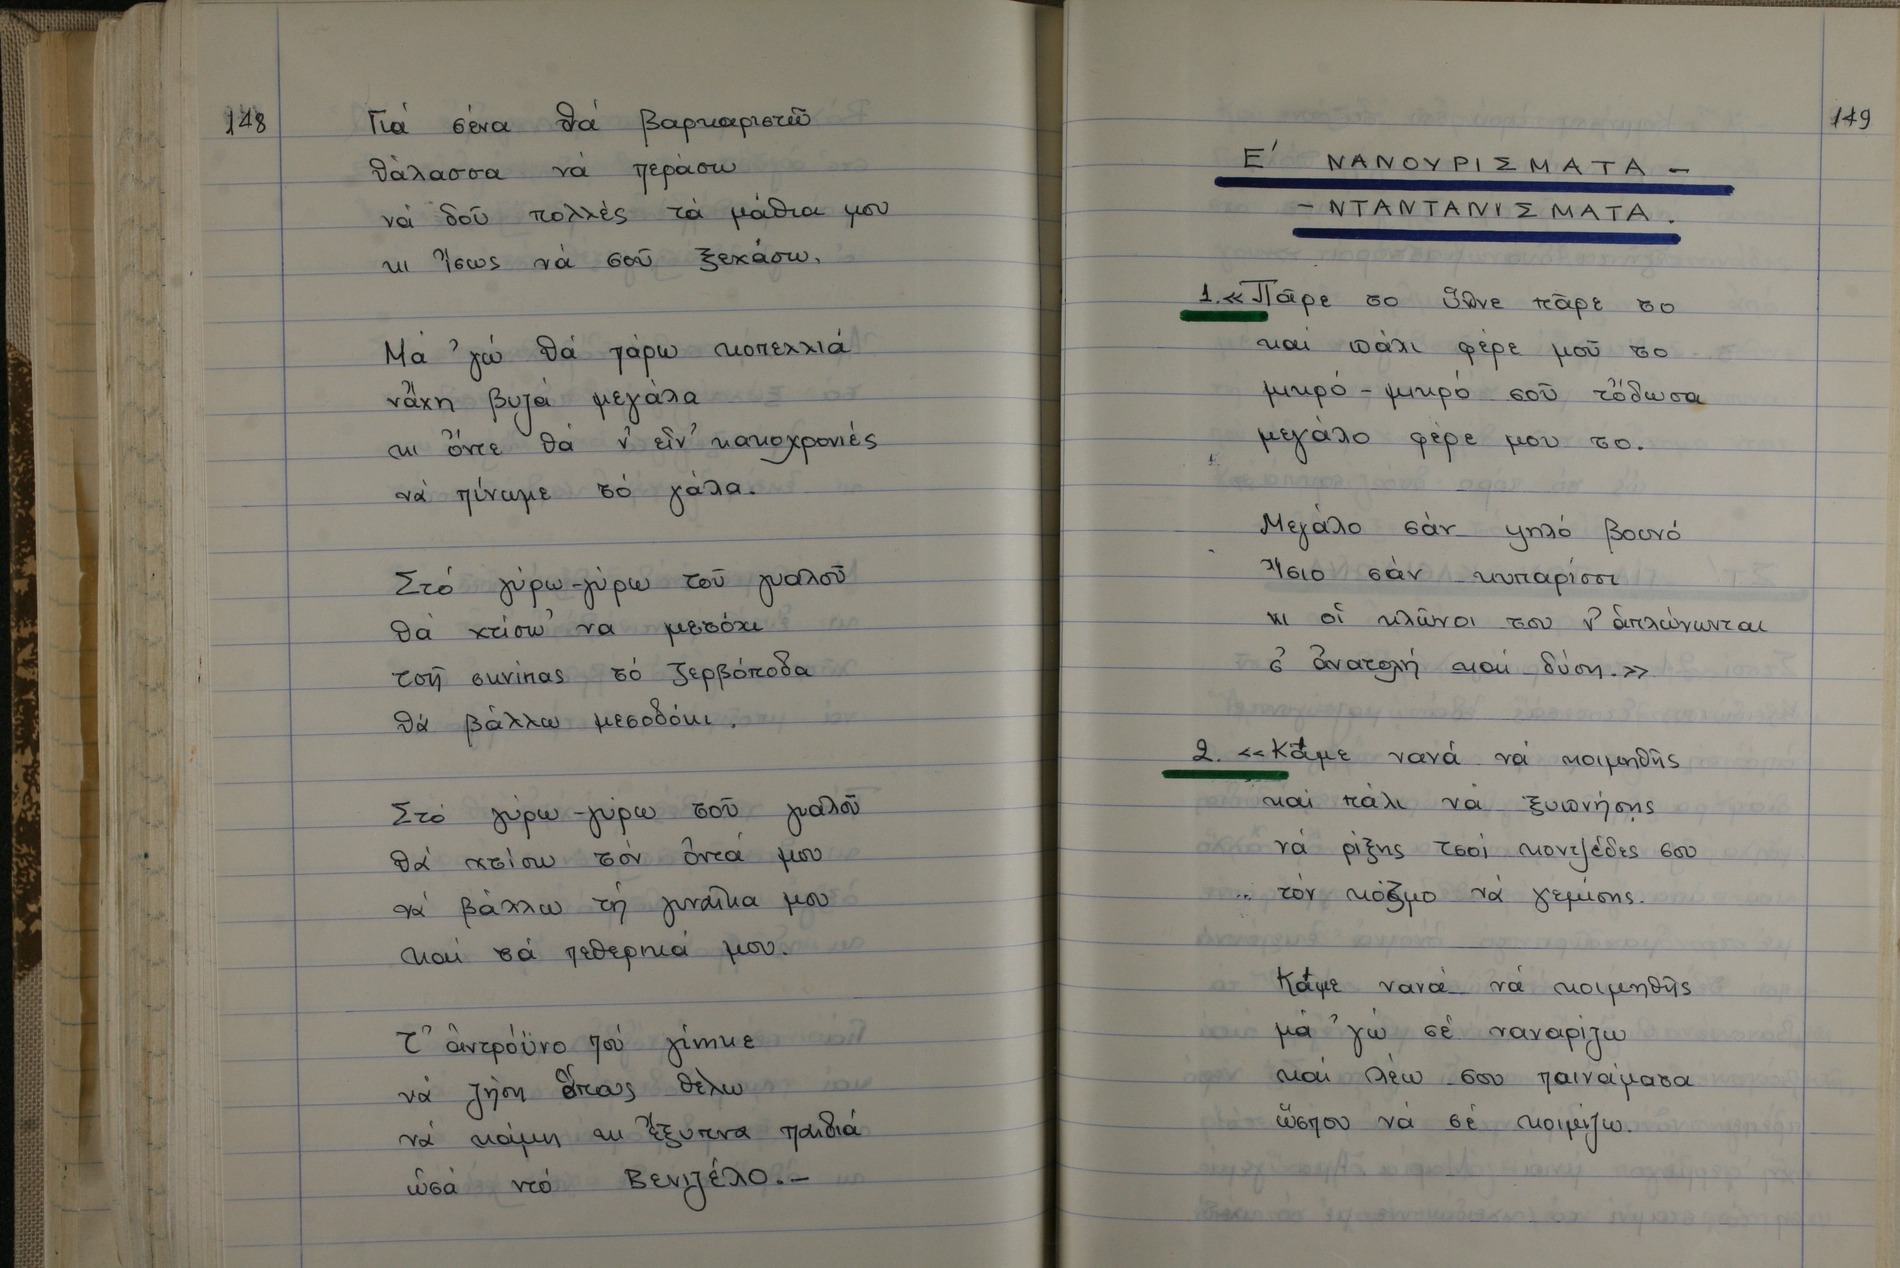 148
Γιά σένα θά βαρκαριστῶ
θάλασσα νά περάσω
νά δοῦ πολλές τά μάθια μου
κι ἴσως νά σοῦ ξεχάσω.
Μά 'γώ θά πάρω κοπελλιά
νἄχη βυζά μεγάλα
κι ὄντε θά ν' εἶν' κακοχρονιές
νά πίναμε τό γάλα.
Στό γύρω-γύρω τοῦ γυαλοῦ
θά χτίσω 'να μετόχι
τσῆ σκνίπας τό ζερβόποδα
θά βάλλω μεσοδόκι.
Στό γύρω-γύρω τοῦ γυαλοῦ
θά χτίσω τόν ὀντά μου
νά βάλλω τή γυναῖκα μου
καί τά πεθερικά μου.
Τ' ἀντρόϋνο πού γίνηκε
νά ζήση ὅπως θέλω
νά κάμη κι ἔξυπνα παιδιά
ὡσά ντό Βενιζέλο.-
149
Ε' ΝΑΝΟΥΡΙΣΜΑΤΑ -
- ΝΤΑΝΤΑΝΙΣΜΑΤΑ.
1. «Πᾶρε το ὕπνε πᾶρε το
καί πάλι φέρε μοῦ το
μικρό-μικρό σοῦ τὄδωσα
μεγάλο φέρε μου το.
Μεγάλο σάν ψηλό βουνό
ἴσιο σάν κυπαρίσσι
κι οἱ κλῶνοι του ν' ἁπλώνωνται
σ' ἀνατολή καί δύση.»
2. «Κάμε νανά νά κοιμηθῆς
καί πάλι νά ξυπνήσης
νά ρίξης τσοί κοντζέδες σου
τόν κόζμο νά γεμίσης.
Κάμε νανά νά κοιμηθῆς
μά 'γώ σέ ναναρίζω
καί λέω σου παινάματα
ὥσπου νά σέ κοιμίζω.